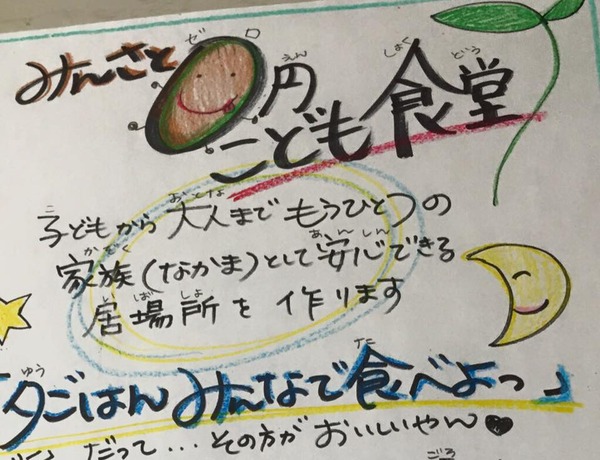 みんさと 0円 こども食堂
子どもから大人まで もうひとつの
家族(なかま)として安心できる
居場所を作ります
「夕ごはん みんなで食べよっ」
だって... その方が おいしいやん♥